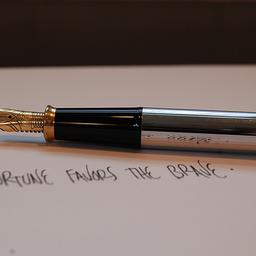 ORTUNE FAVORS THE BRAVE.